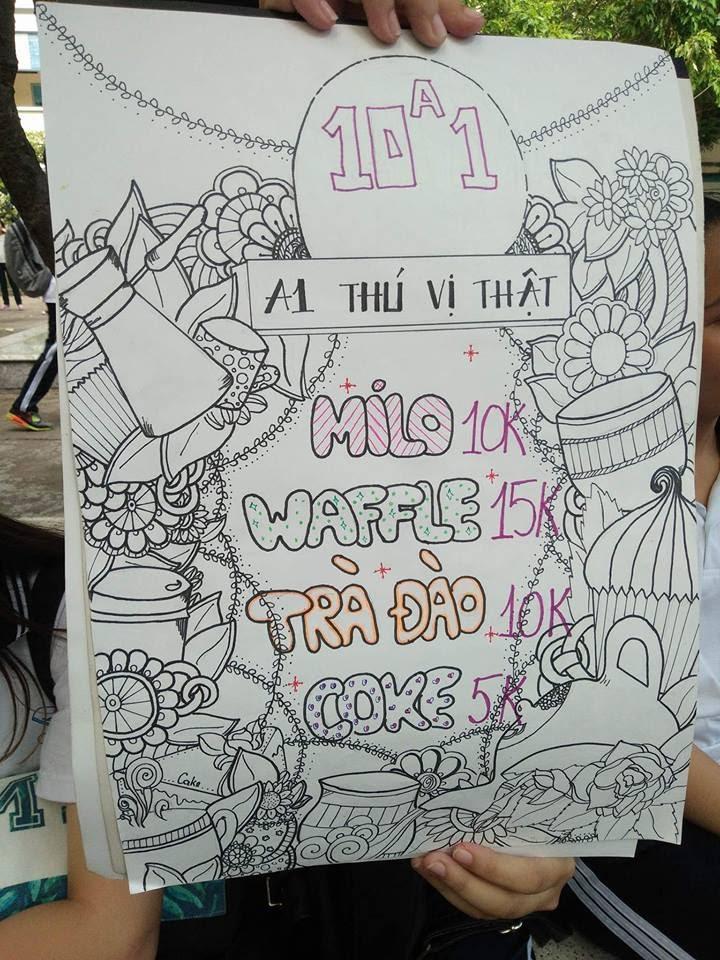 10A1
A1 THÚ VỊ THẬT
MiLO 10K
WAFFLE 15K
TRÀ ĐÀO 10K
COKE 5K
Cake